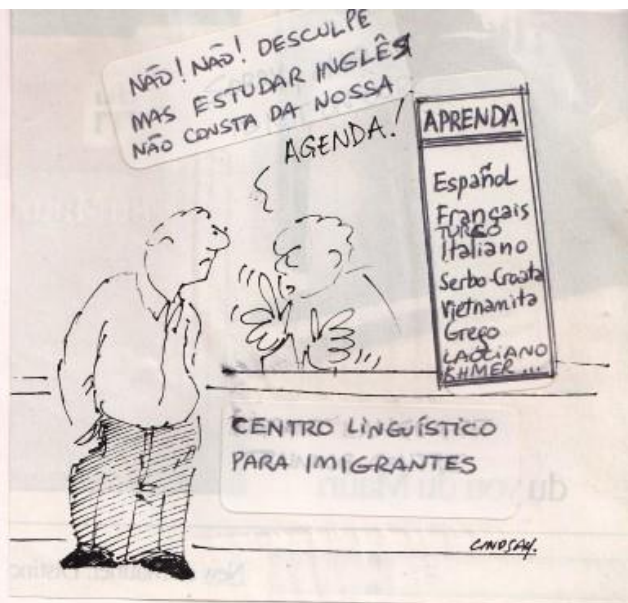 NÃO! NÃO! DESCULPE
MAS ESTUDAR INGLÊS
NÃO CONSTA DA NOSSA
AGENDA!
APRENDA
Español
Français
TURCO
Italiano
Serbo-Croata
Vietnamita
Grego
LAOCIANO
KHMER ...
CENTRO LINGUÍSTICO
PARA IMIGRANTES
LINDSAY.
du